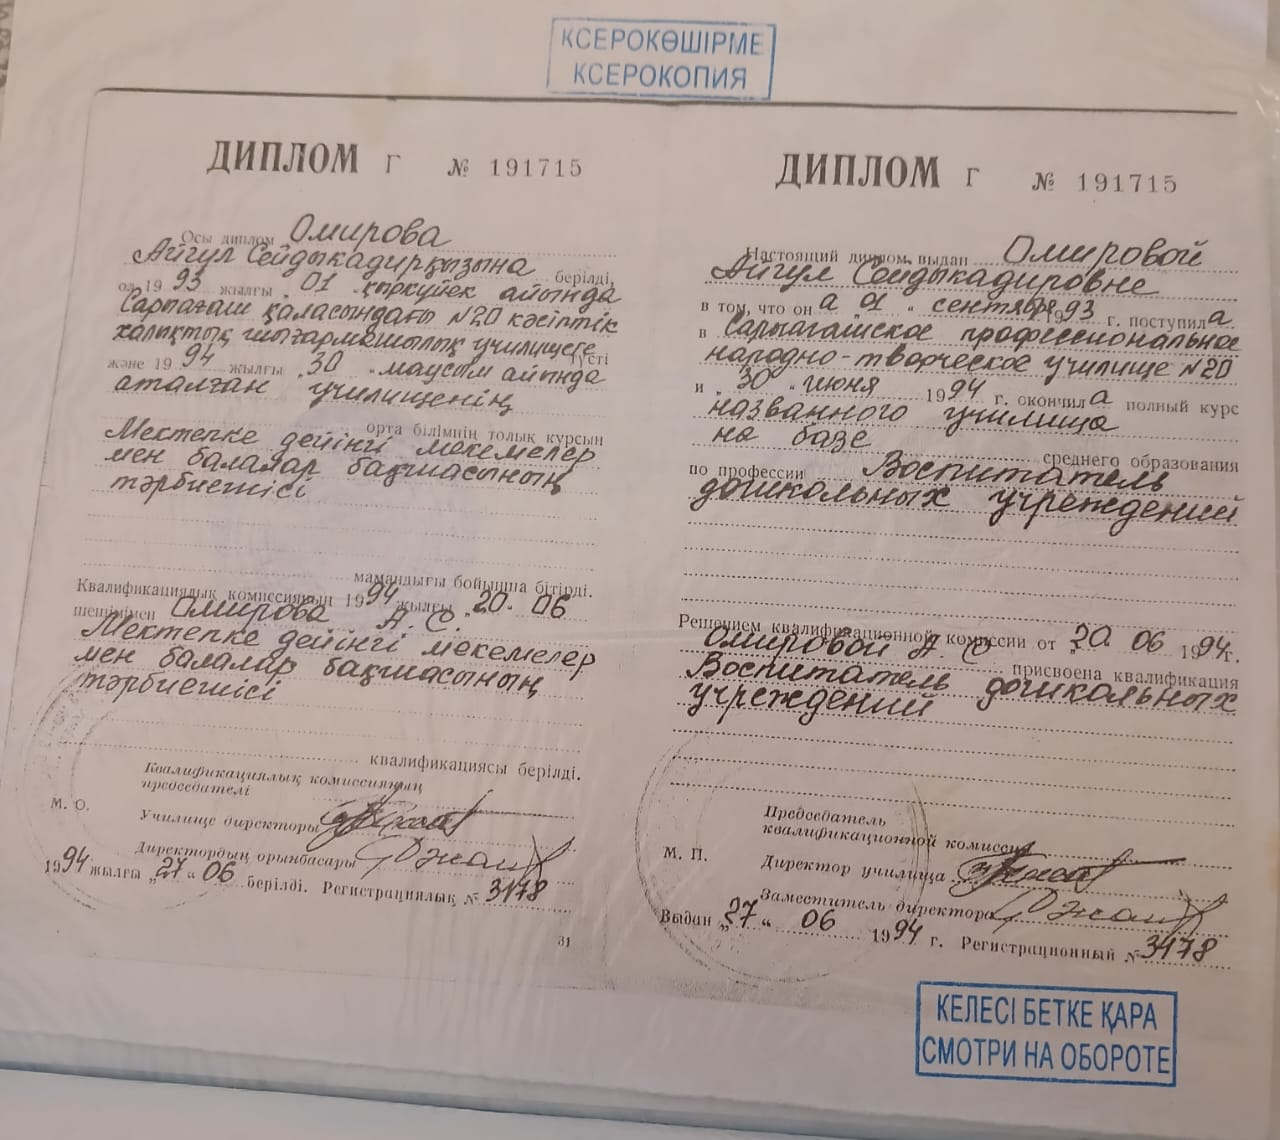 КСЕРОКӨШІРМЕ
КСЕРОКОПИЯ
ДИПЛОМ Г № 191715
Осы диплом Омирова
Айгул Сейдыкадирқызына берілді,
ол 19 93 жылғы „ 01 қыркүйек айында
Сарыағаш қаласындағы №20 кәсіптік
халықтық шығармашылық училищеге түсті
және 19 94 жылғы „ 30 " маусым айында
аталған училищенің
орта білімнің толық курсын
Мектепке дейінгі мекемелер
мен балалар бақшасының
тәрбиешісі
мамандығы бойынша бітірді.
Квалификациялық комиссияның 19 94 жылғы „ 20 " 06
шешімімен Омирова А. С.
Мектепке дейінгі мекемелер
мен балалар бақшасының
тәрбиешісі
квалификациясы берілді.
Квалификациялық комиссияның
председателі
М. О.
Училище директоры
Директордың орынбасары
19 94 жылғы „ 27 " 06 берілді. Регистрациялық № 3178
31
ДИПЛОМ Г № 191715
Настоящий диплом выдан Омировой
Айгул Сейдыкадировне
в том, что он а „ 01 " сентября 19 93 г. поступил а
в Сарыагашское профессиональное
народно-творческое училище №20
и „ 30 " июня 19 94 г. окончил а полный курс
названного училища
на базе среднего образования
по профессии Воспитатель
дошкольных учреждений
Решением квалификационной комиссии от 20 06 19 94 г.
Омировой А С присвоена квалификация
Воспитатель дошкольных
учреждений
Председатель
квалификационной комиссии
М. П.
Директор училища
Заместитель директора
Выдан „ 27 " 06 19 94 г. Регистрационный № 3178
КЕЛЕСІ БЕТКЕ ҚАРА
СМОТРИ НА ОБОРОТЕ